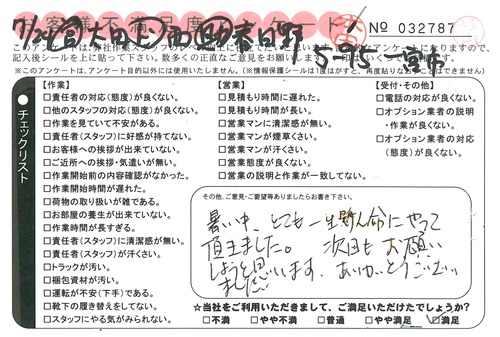 お客様不満足度アンケート
№ 032787
記入後シールを上に貼って下さい。
※このアンケートは、アンケート目的以外には使用いたしません。(※情報保護シールは1度はがすと、再度貼りなおすことはできません)
チェックリスト
【作業】
□責任者の対応(態度)が良くない。
□他のスタッフの対応(態度)が良くない。
□作業を見ていて不安がある。
□責任者(スタッフ)に好感が持てない。
□お客様への挨拶が出来ていない。
□ご近所への挨拶・気遣いが無い。
□作業開始前の内容確認がなかった。
□作業開始時間が遅れた。
□荷物の取り扱いが雑である。
□お部屋の養生が出来ていない。
□作業時間が長すぎる。
□責任者(スタッフ)に清潔感が無い。
□責任者(スタッフ)が汗くさい。
□トラックが汚い。
□梱包資材が汚い。
□運転が不安(下手)である。
□靴下の履き替えをしてない。
□スタッフにやる気がみられない。
【営業】
□見積もり時間に遅れた。
□見積もり時間が長い。
□営業マンに清潔感が無い。
□営業マンが煙草くさい。
□営業マンが汗くさい。
□営業態度が良くない。
□営業の説明と作業が一致してない。
【受付・その他】
□電話の対応が良くない。
□オプション業者の説明
・作業が良くない。
□オプション業者の対応
(態度)が良くない。
その他、ご意見・ご要望等ありましたらお書き下さい。
暑い中、とても一生懸命にやって
頂きました。 次回も お願い
しようと思います、ありがとうござい
ました
☆当社をご利用いただきまして、ご満足いただけたでしょうか?
□不満 □やや不満 □普通 □やや満足 □満足